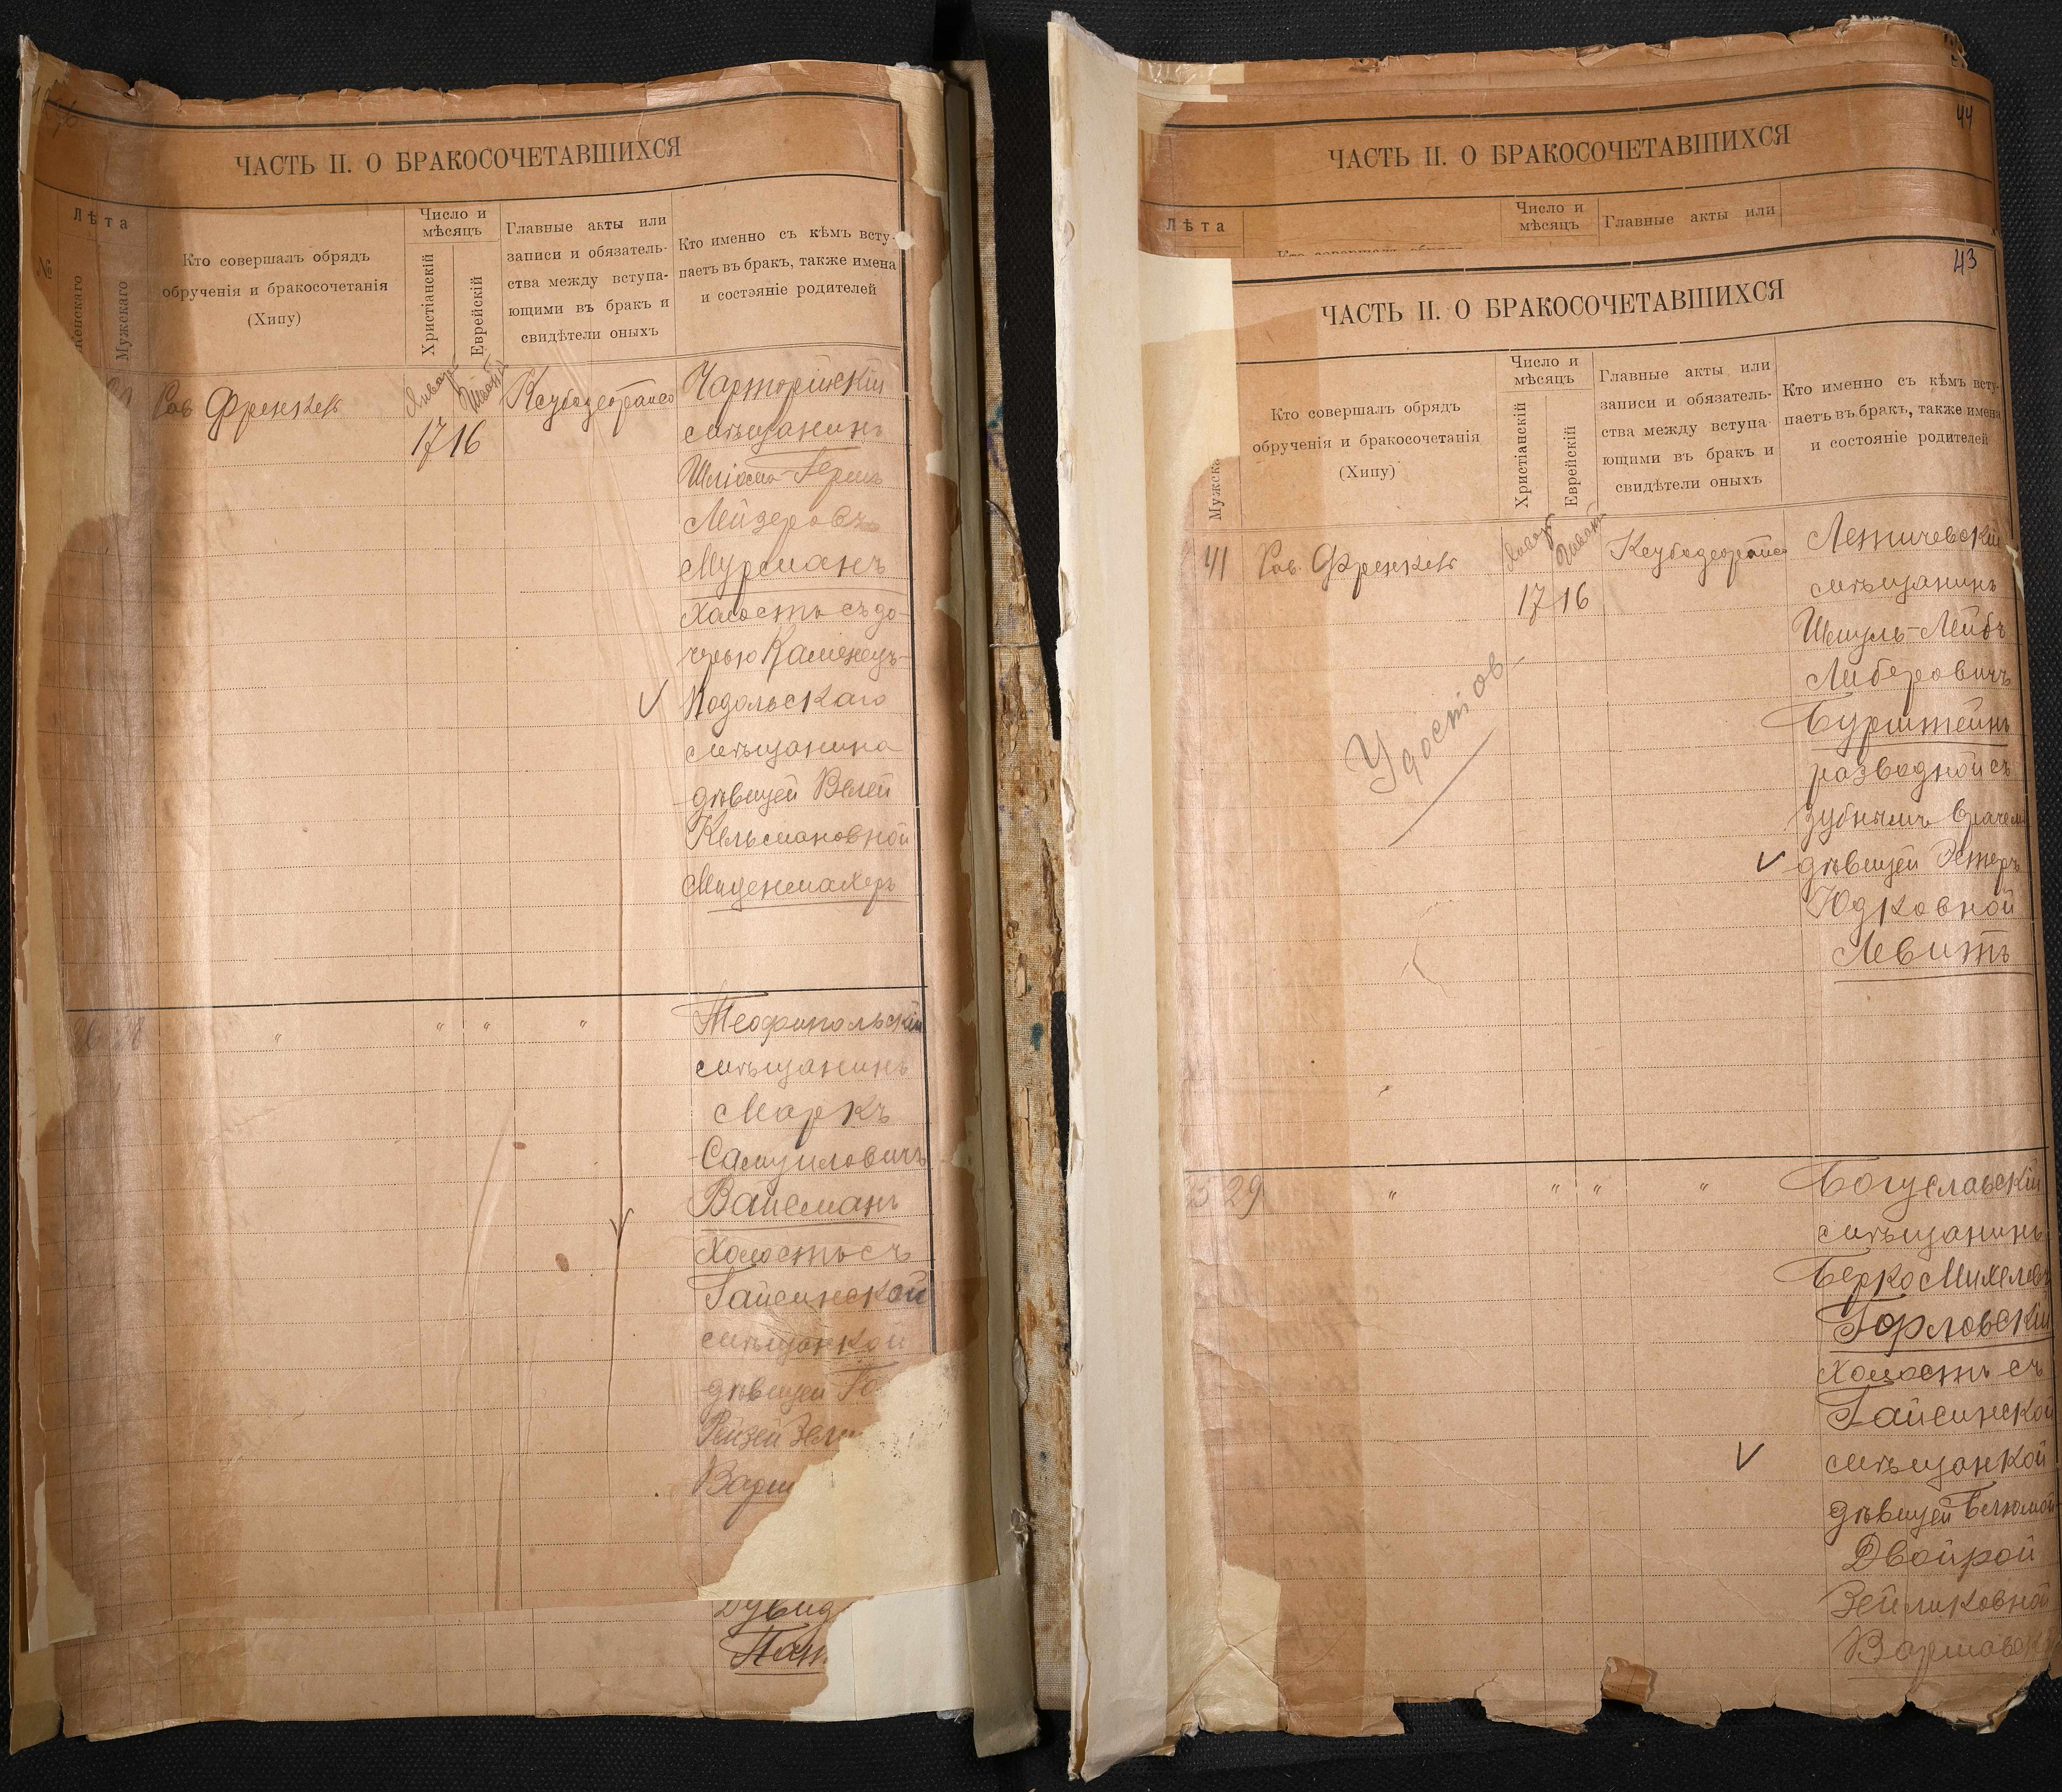 ЧАСТЬ II. О БРАКОСОЧЕТАВШИХСЯ
Лѣта
№
Мужскаго
Кто совершалъ обрядъ
обрученія и бракосочетанія
(Хипу)
Число и
мѣсяцъ
Христіанскій
Еврейскій
Главные акты или
записи и обязатель-
ства между вступа-
ющими въ бракъ и
свидѣтели оныхъ
Кто именно съ кѣмъ всту-
паетъ въ бракъ, также имена
и состояніе родителей
Рав Френкель
Январ
17 16
Чарторійскій
мѣщанинъ
Шліома-Гершъ
Лейзеровъ
Мурманъ
холостъ съ до-
черью Каменецъ-
Подольскаго
мѣщанина
дѣвицей Велей
Кельмановной
✓
"
"
"
"
Теофипольскій
мѣщанинъ
Маркъ
Самуиловичъ
Вайсманъ
холостъ съ
Гайсинской
мѣщанкой
дѣвицей
Рейзей
✓
Дувид
ЧАСТЬ II. О БРАКОСОЧЕТАВШИХСЯ
44
Лѣта
Число и
мѣсяцъ
Главные акты или
43
ЧАСТЬ II. О БРАКОСОЧЕТАВШИХСЯ
Кто совершалъ обрядъ
обрученія и бракосочетанія
(Хипу)
Число и
мѣсяцъ
Христіанскій
Еврейскій
Главные акты или
записи и обязатель-
ства между вступа-
ющими въ бракъ и
свидѣтели оныхъ
Кто именно съ кѣмъ всту-
паетъ въ бракъ, также имена
и состояніе родителей
41
Рав. Френкель
Январ
17 16
Летичевскій
мѣщанинъ
Шмуль-Лейбъ
Либеровичъ
Бурштейнъ
разводной съ
зубнымъ врачем
дѣвицей Эстеръ
Юдковной
Левитъ
✓
Удостов
29
"
"
"
"
Богуславскій
мѣщанинъ
Берко Михелев
Горловскій
холостъ съ
Гайсинской
мѣщанкой
дѣвицей
Двойрой
Зейликовной
✓